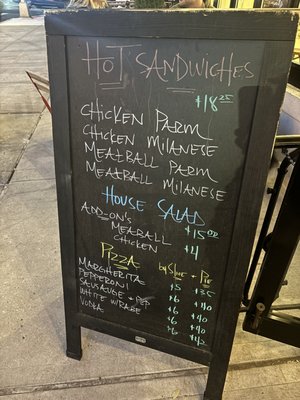 HOT SANDWICHES
$18.25
CHICKEN PARM
CHICKEN MILANESE
MEATBALL PARM
MEATBALL MILANESE
HOUSE SALAD
$15.00
ADD-ON'S
MEATBALL
CHICKEN $4
PIZZA by Slice + Pie
MARGHERITA $5 $35
PEPPERONI $6 $40
SAUSAUGE + PEP $6 $40
WHITE W/RABE $6 $40
VODKA $6 $42